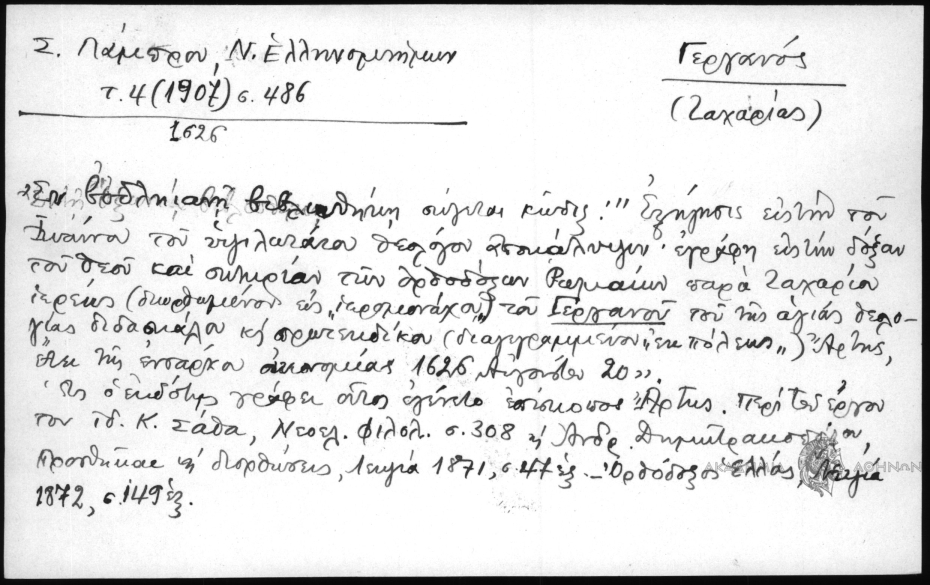 Σ. Λάμπρου, Ν. Ἑλληνομνήμων
τ. 4 (1907) σ. 486
1626
Γεργανός
(Ζαχαρίας)
Ἐν βοδληιανῇ βιβλιοθήκῃ σώζεται κώδιξ: "Ἐξήγησις εἰς τὴν τοῦ
Ἰωάννου τοῦ ὑψηλοτάτου θεολόγου ἀποκάλυψιν· ἐγράφη εἰς τὴν δόξαν
τοῦ θεοῦ καὶ σωτηρίαν τῶν ὀρθοδόξων Ρωμαίων παρὰ Ζαχαρίου
ἱερέως (διωρθωμένον εἰς "ἱερομονάχου") τοῦ Γεργανοῦ τοῦ τῆς ἁγίας θεολο-
γίας διδασκάλου κὴ πρωτεκδίκου (διαγεγραμμένον "ἐκ πόλεως") Ἄρτης,
ἔτει τῆς ἐνσάρκου οἰκονομίας 1626 Αὐγούστου 20».
Ὡς ὁ ἐκδότης γράφει οὗτος ἐγένετο ἐπίσκοπος Ἄρτης. Περὶ τοῦ ἔργου
του ἰδ. Κ. Σάθα, Νεοελ. φιλολ. σ. 308 κὴ Ἀνδρ Δημητρακοπούλου,
Προσθῆκαι κὴ διορθώσεις, Λειψία 1871, σ. 47 ἑξ. – Ὀρθόδοξος Ἑλλάς, Λειψία
1872, σ. 149 ἑξ.
ΑΚΑΔΗΜΙΑ ΑΘΗΝΩΝ